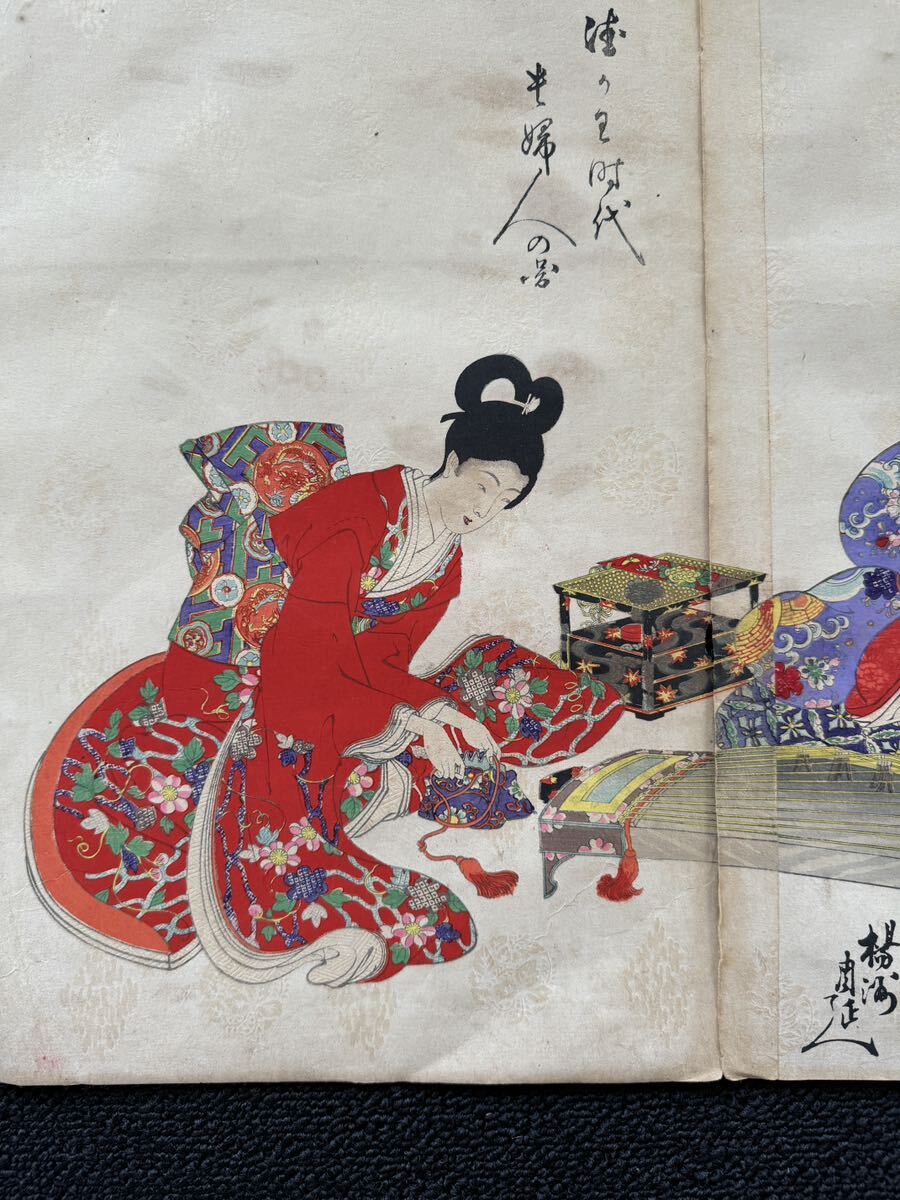 徳かわ時代
貴婦人の図
楊洲
周延